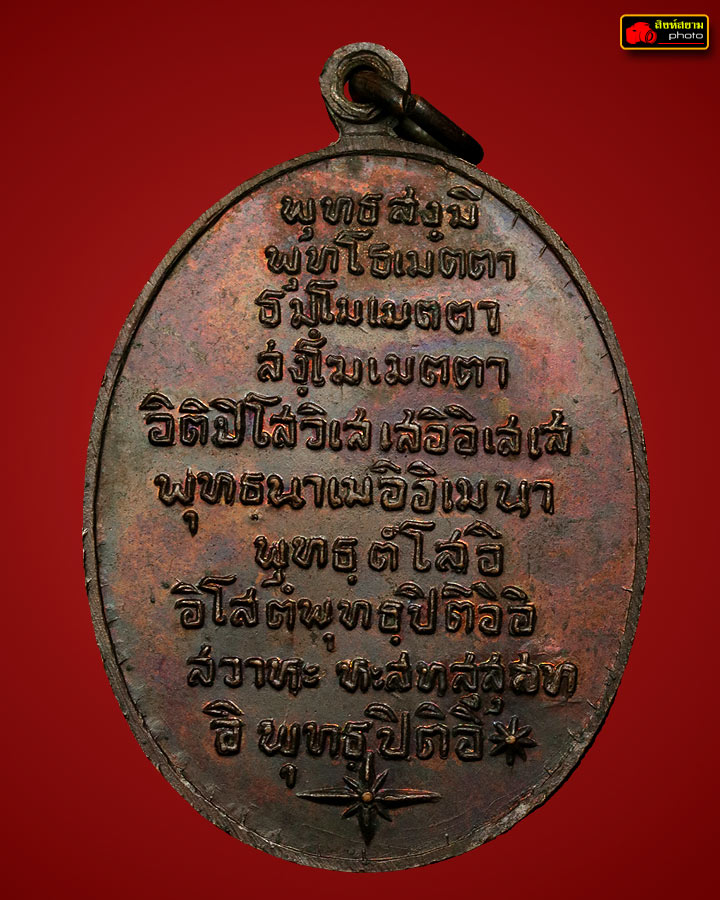 สิงห์สยาม
photo
พุทธสงฺมิ
พุทโธเมตตา
ธมฺโมเมตตา
สงฺโฆเมตตา
อิติปิโสวิเสเสอิอิเสเส
พุทธฺนาเมอิอิเมนา
พุทธฺตํโสอิ
อิโสตํพุทธฺปิติอิอิ
สวาหะ หะสหสุสุสห
อิ พุทธฺปิติอิ